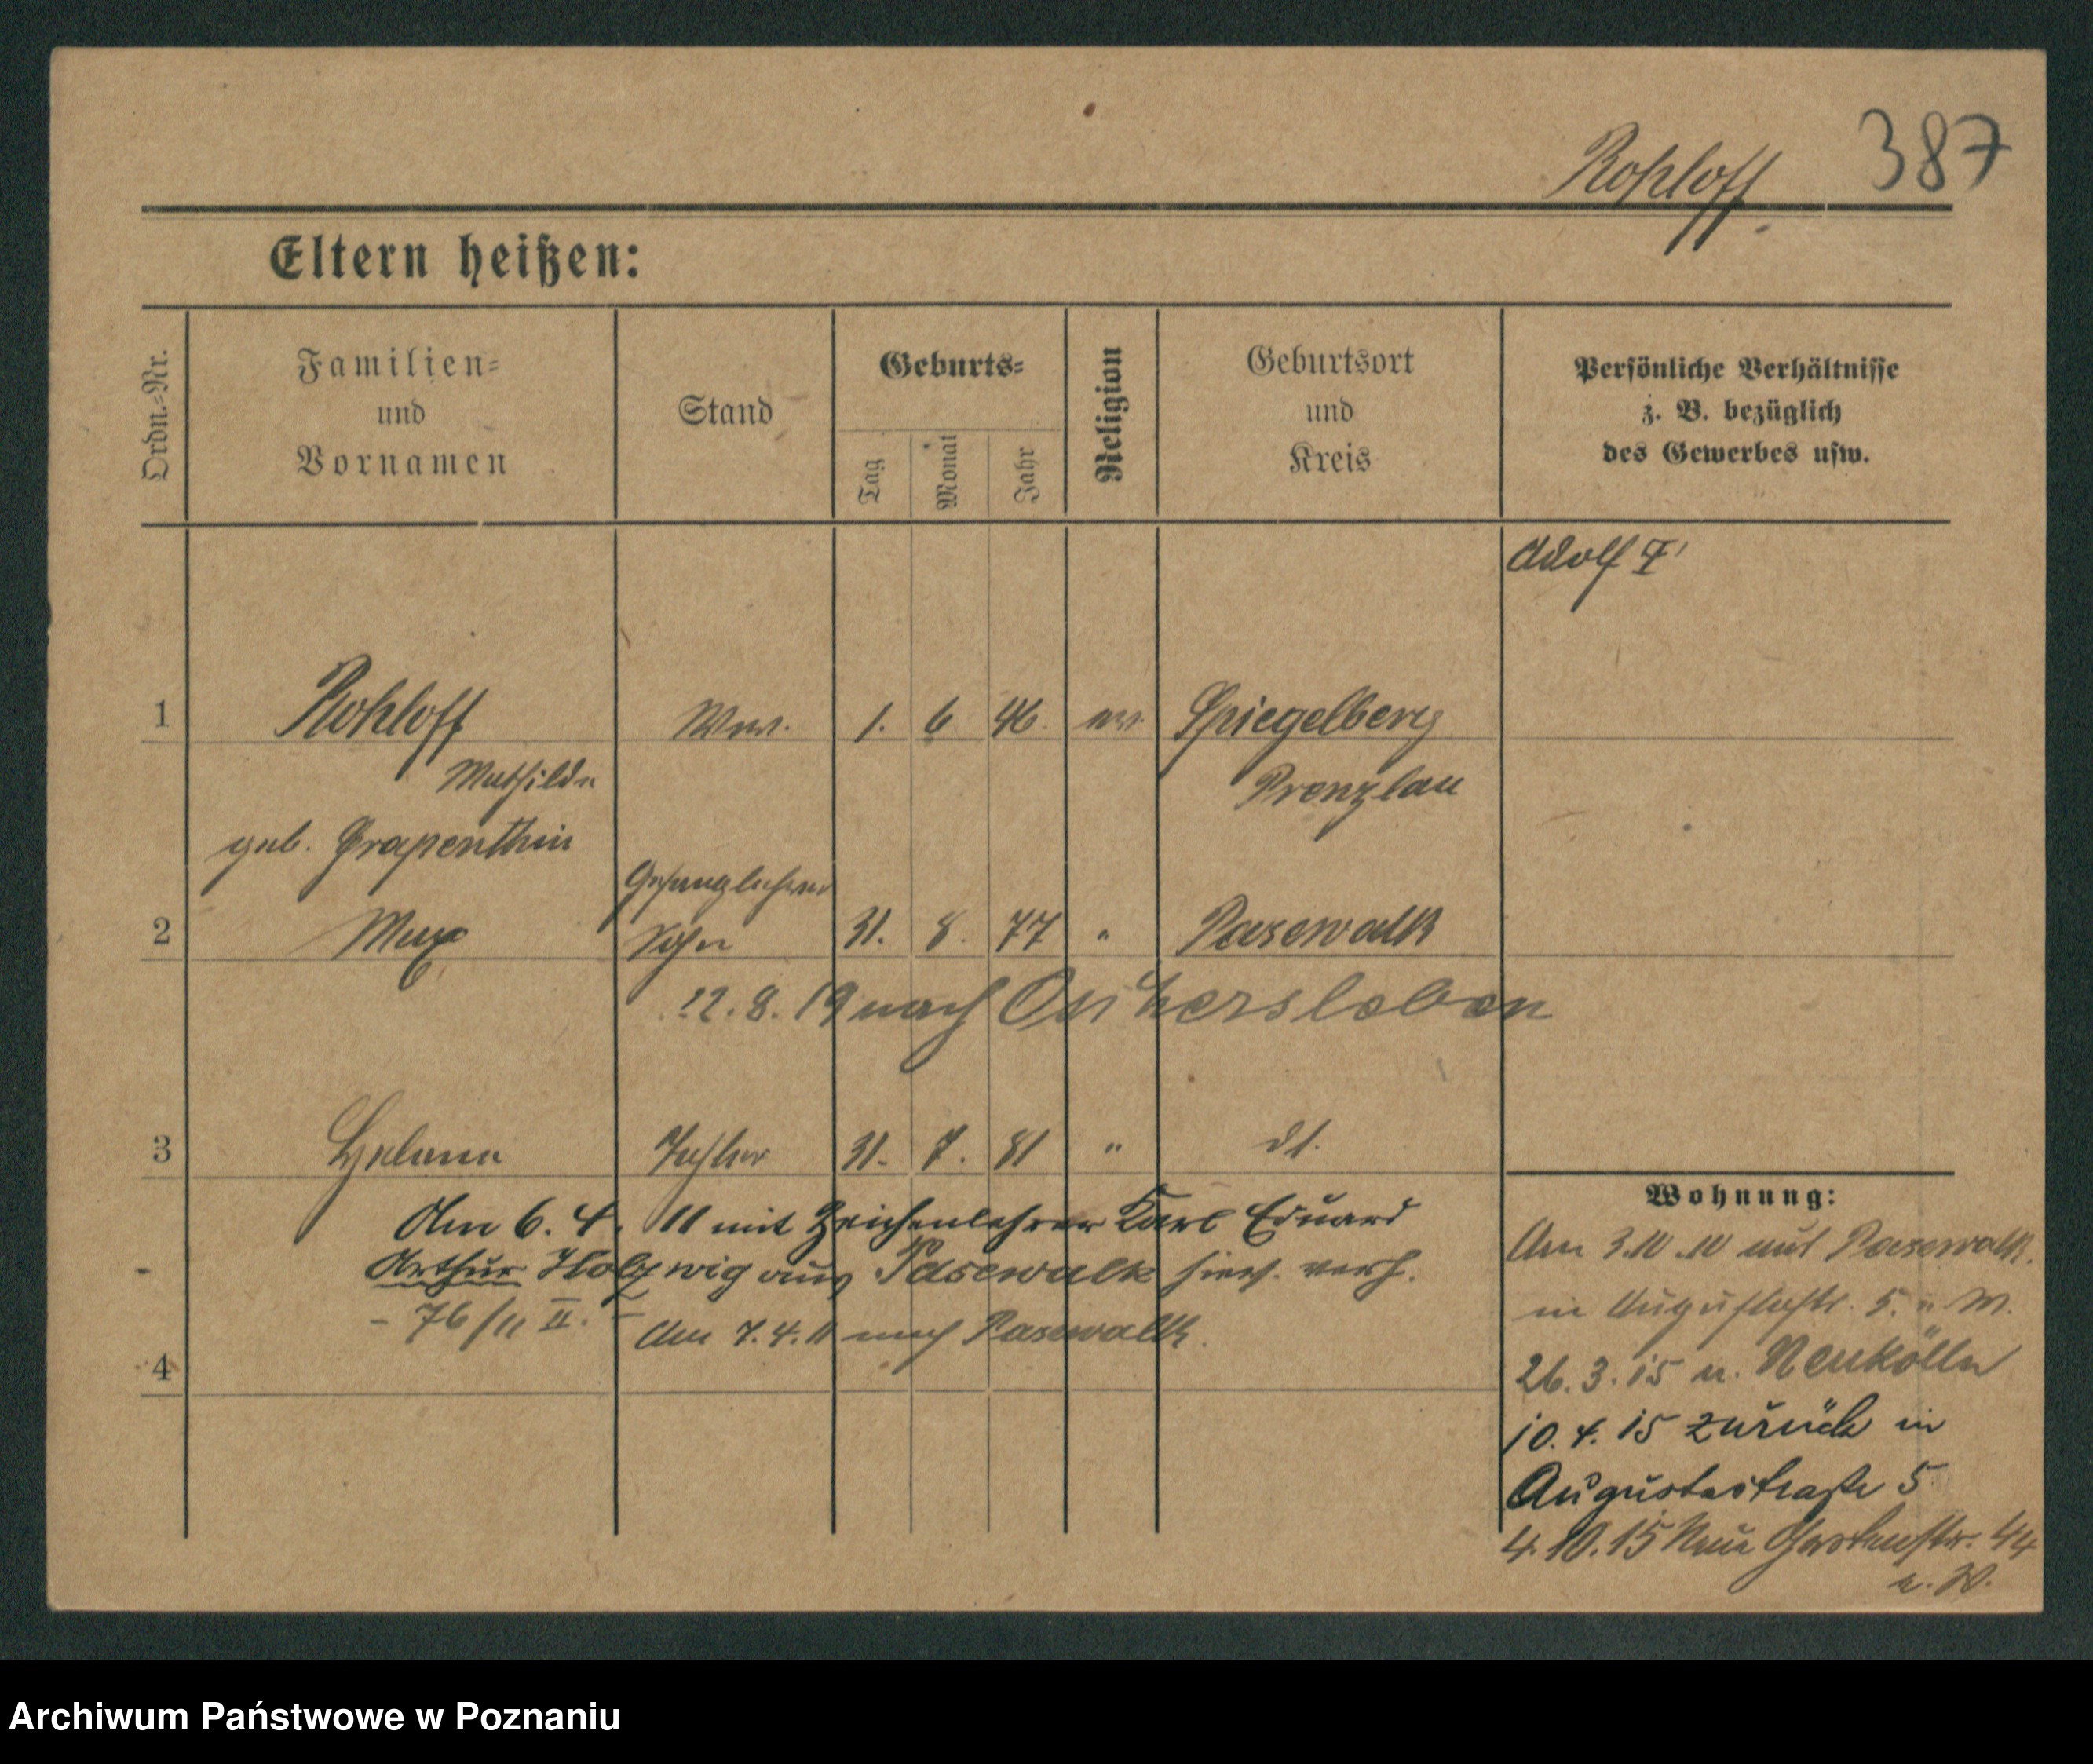 387
Rohloff
Eltern heißen:
Ordn.=Nr.
Familien=
und
Vornamen
Stand
Geburts=
Tag
Monat
Jahr
Religion
Geburtsort
und
Kreis
Persönliche Verhältnisse
z. B. bezüglich
des Gewerbes usw.
Adolf
1 Rohloff Wwe. 1. 6 46. ev. Spiegelberg
Mathilde Prenzlau
geb. Grapenthin
Gesanglehrer
2 Max Sohn 31. 8. 77 " Pasewalk
22.8.19 nach Oschersleben
3 Helene Tochter 31. 7. 81 " dt.
Am 6. 4. 11 mit Zeichenlehrer Karl Eduard
Arthur Holzwig aus Pasewalk hier verh.
- 76/11 II. -
Am 7.4.11 nach Pasewalk.
4
Wohnung:
Am 3.10.10 aus Pasewalk.
in Augustastr. 5.
26.3.15 n. Neukölln
10.4.15 zurück in
Augustastraße 5
4.10.15 Neue Gartenstr. 44
Archiwum Państwowe w Poznaniu